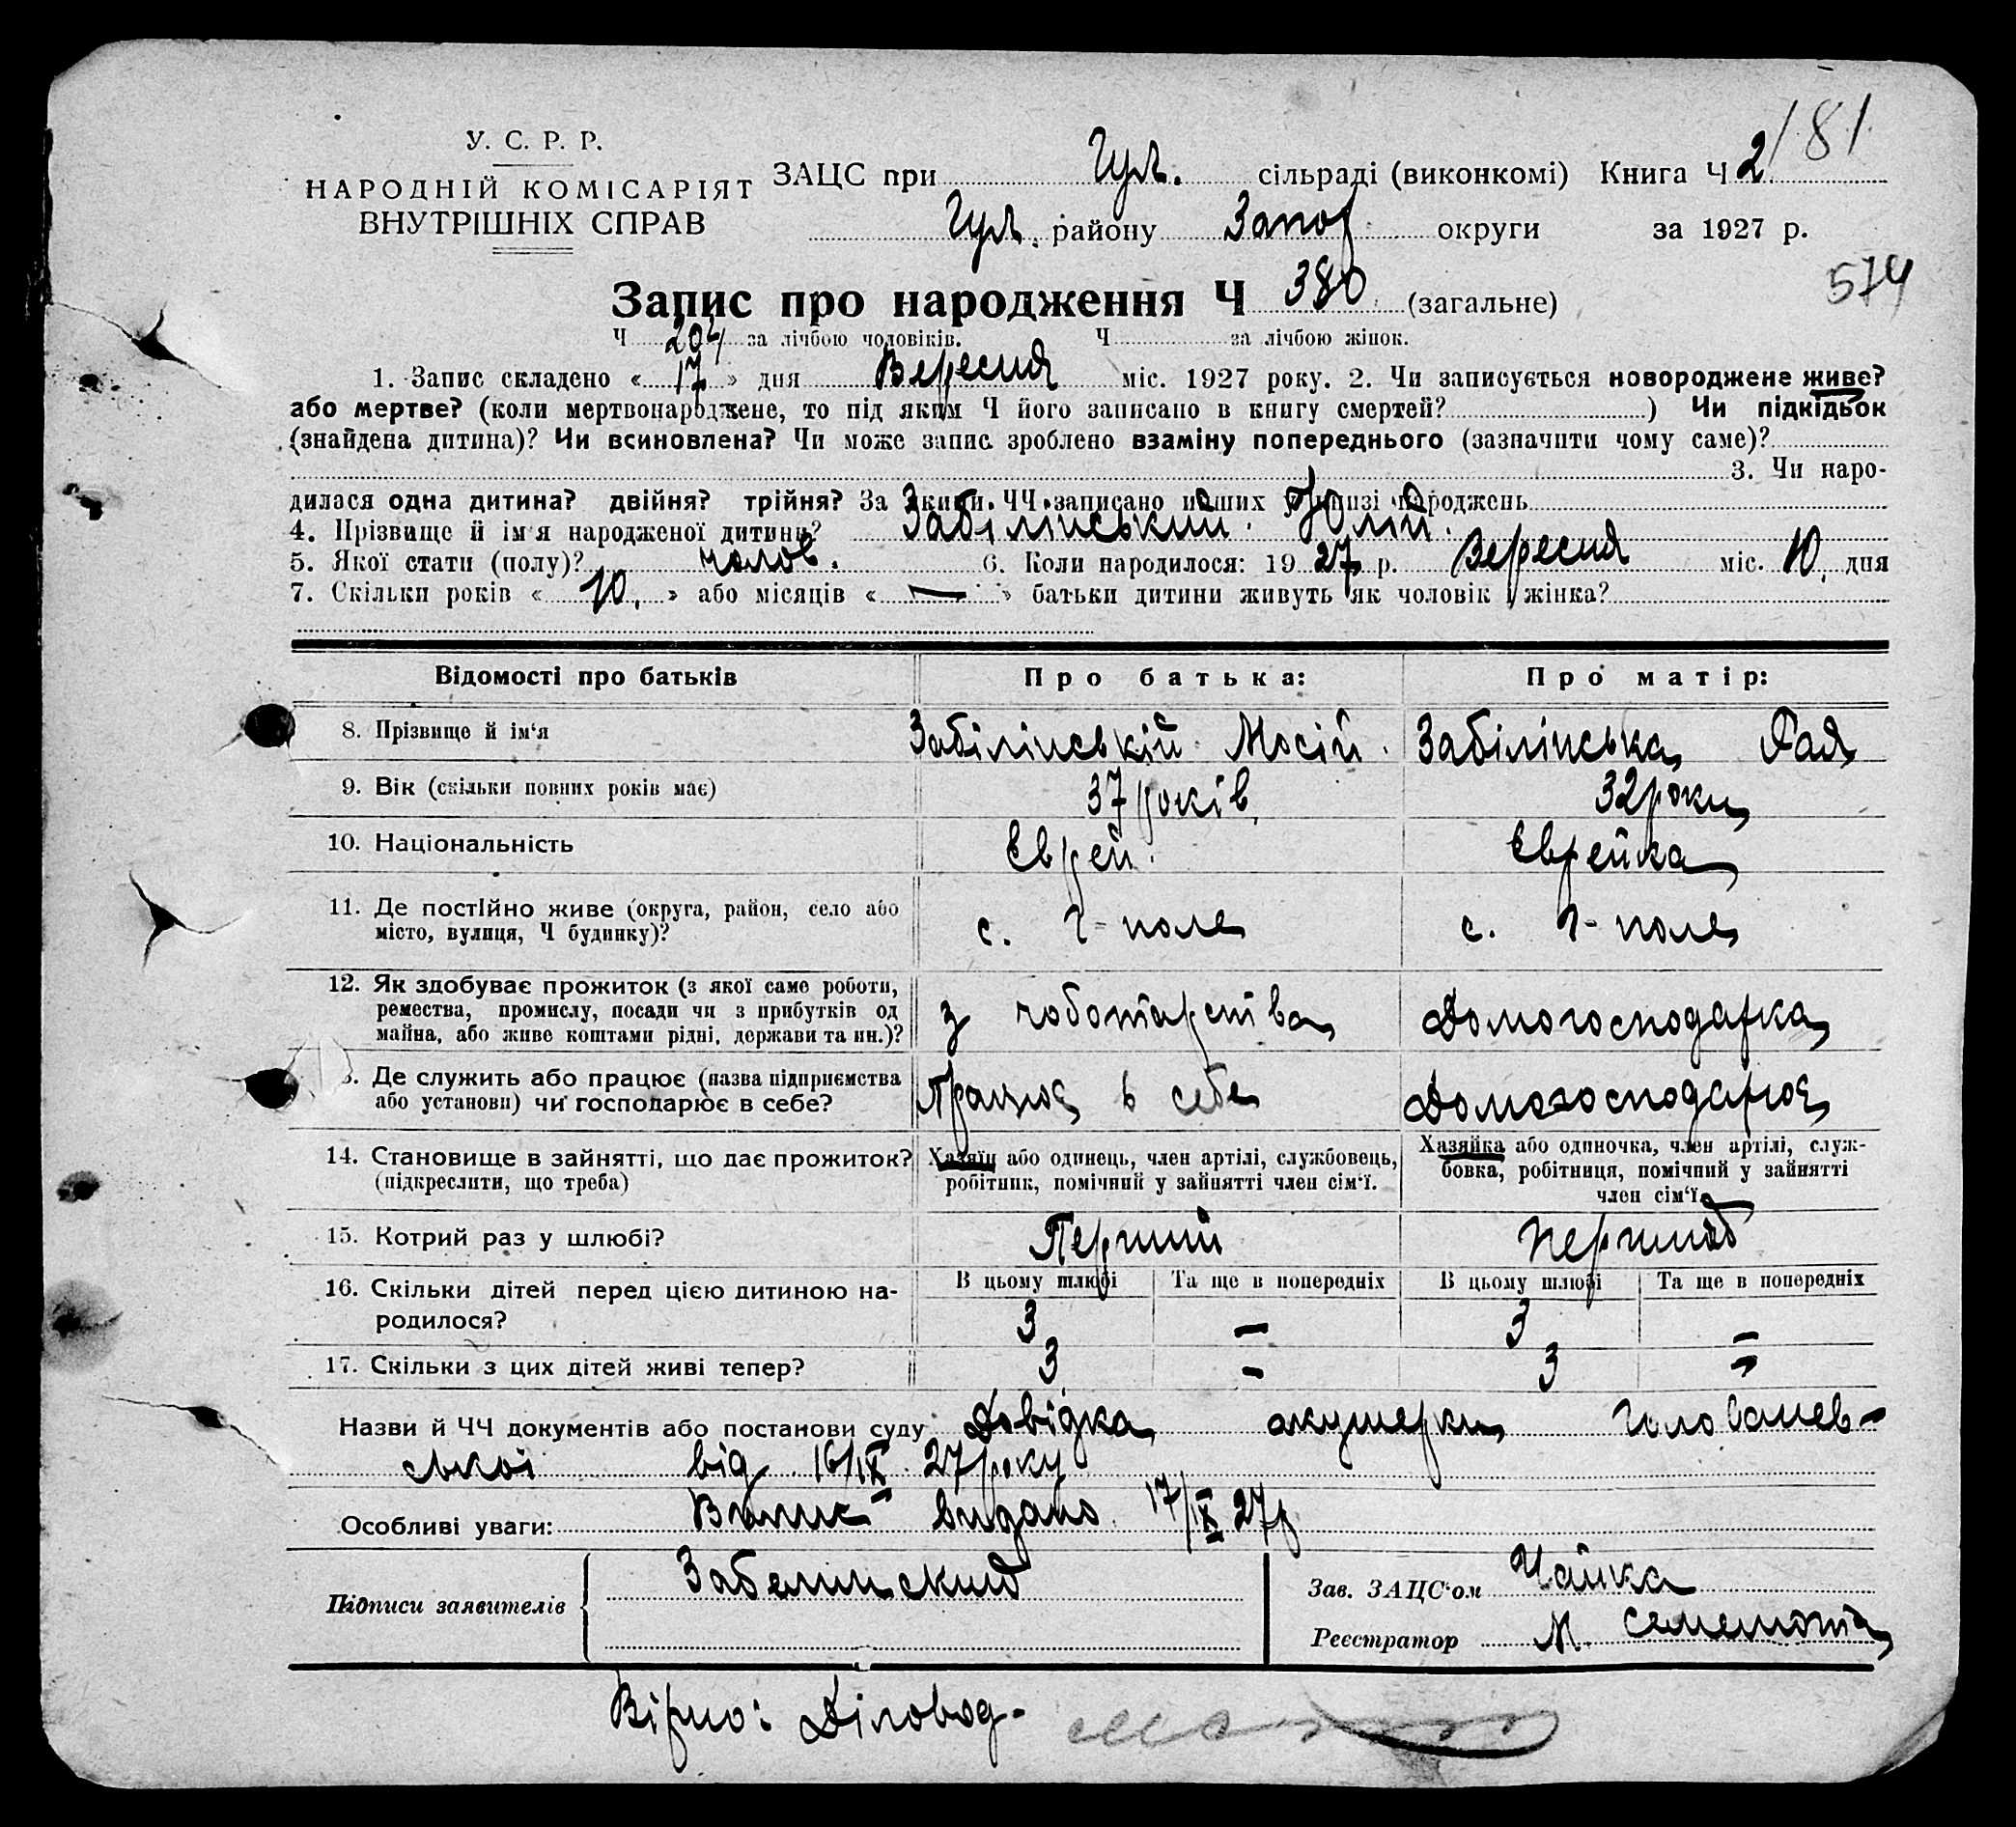 У. С. Р. Р.
НАРОДНІЙ КОМІСАРІЯТ
ВНУТРІШНІХ СПРАВ
ЗАЦС при Гул. сільраді (виконкомі) Книга Ч 2 / 81
Гул. району Запор округи за 1927 р.
574
Запис про народження Ч 380 (загальне)
Ч 204 за лічбою чоловіків. Ч за лічбою жінок.
1. Запис складено « 17 » дня Вересня міс. 1927 року. 2. Чи записується новороджене живе?
або мертве? (коли мертвонароджене, то під яким Ч його записано в книгу смертей? ) Чи підкідьок
(знайдена дитина)? Чи всиновлена? Чи може запис зроблено взаміну попереднього (зазначити чому саме)?
3. Чи наро-
дилася одна дитина? двійня? трійня? За якими ЧЧ записано инших у книзі народжень
4. Прізвище й ім'я народженої дитини? Забілінський Юлій.
5. Якої стати (полу)? чолов. 6. Коли народилося: 19 27 р. Вересня міс. 10. дня
7. Скільки років « 10. » або місяців « — » батьки дитини живуть як чоловік і жінка?
Відомості про батьків Про батька: Про матір:
8. Прізвище й ім'я Забілінській Мосій. Забілінська Рая
9. Вік (скільки повних років має) 37 років 32 роки
10. Національність Еврей. Еврейка
11. Де постійно живе (округа, район, село або
місто, вулиця, Ч будинку)? с. Г-поле с. Г-поле
12. Як здобуває прожиток (з якої саме роботи,
ремества, промислу, посади чи з прибутків од
майна, або живе коштами рідні, держави та ин.)? з чоботарства Домогосподарка
3. Де служить або працює (назва підприємства
або установи) чи господарює в себе? Працює в себе Домогосподарює
14. Становище в зайнятті, що дає прожиток?
(підкреслити, що треба)
Хазяїн або одинець, член артілі, службовець,
робітник, помічний у зайнятті член сім'ї.
Хазяйка або одиночка, член артілі, служ-
бовка, робітниця, помічний у зайнятті
член сім'ї.
15. Котрий раз у шлюбі? Перший перший
16. Скільки дітей перед цією дитиною на-
родилося?
В цьому шлюбі Та ще в попередніх В цьому шлюбі Та ще в попередніх
3 — 3 —
17. Скільки з цих дітей живі тепер? 3 - 3 -
Назви й ЧЧ документів або постанови суду Довідка акушерки Головашев-
ської від 16/IX 27 року
Особливі уваги: Випис видано 17/IX 27р
Підписи заявителів Забелинский
Зав. ЗАЦС'ом Чайка
Реєстратор М.
Вірно: Діловод-